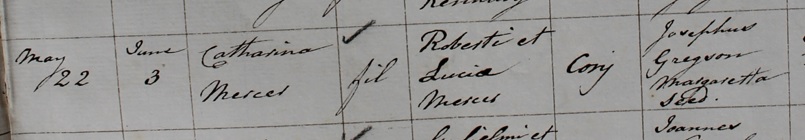 May
22
June
3
Catharina
Mercer
✓
fil
Roberti et
Lucia
Mercer
Conj
Josephus
Gregson
Margaretta
Seed.
Joannes